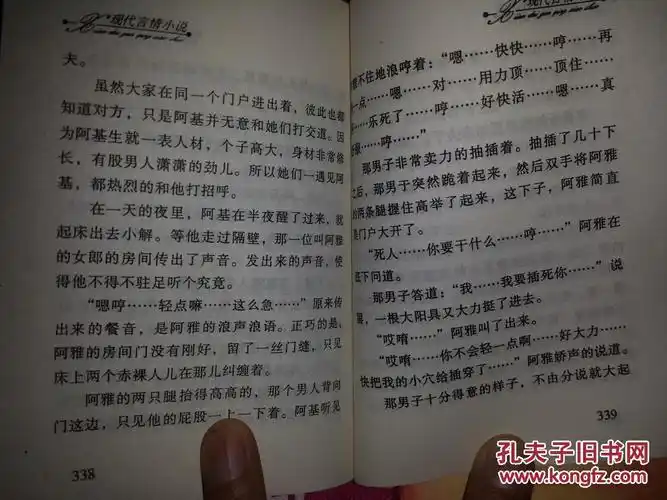 现代言情小说
夫。
虽然大家在同一个门户进出着，彼此也都
知道对方，只是阿基并无意和她们打交道。因
为阿基生就一表人材，个子高大，身材非常修
长，有股男人潇潇的劲儿。所以她们一遇见阿
基，都热烈的和他打招呼。
在一天的夜里，阿基在半夜醒了过来，就
起床出去小解。等他走过隔壁，那一位叫阿雅
的女郎的房间传出了声音。发出来的声音，使
得他不得不驻足听个究竟。
“嗯哼……轻点嘛……这么急……”原来传
出来的餐音，是阿雅的浪声浪语。正巧的是，
阿雅的房间门没有刚好，留了一丝门缝，只见
床上两个赤裸人儿在那儿纠缠着。
阿雅的两只腿抬得高高的，那个男人背向
门这边，只见他的屁股一上一下着。阿基听见
338
现代言情
不住地浪哼着：“嗯……快快……哼……再
一点……嗯……对……用力顶……顶住……
乐死了……哼……好快活……嗯……真
……哼……”
那男子非常卖力的抽插着。抽插了几十下
之后，那男于突然跪着起来，然后双手将阿雅
的两条腿握住高举了起来，这下子，阿雅简直
是门户大开了。
“死人……你要干什么……哼……”阿雅在
底下问道。
那男子答道：“我……我要插死你……”说
，一根大阳具又大力挺了进去。
“哎唷……”阿雅叫了出来。
“哎唷……你不会轻一点啊……好大力……
快把我的小穴给插穿了……”阿雅娇声的说道。
那男子十分得意的样子，不由分说就大起
339
孔夫子旧书网
KONGFZ.COM